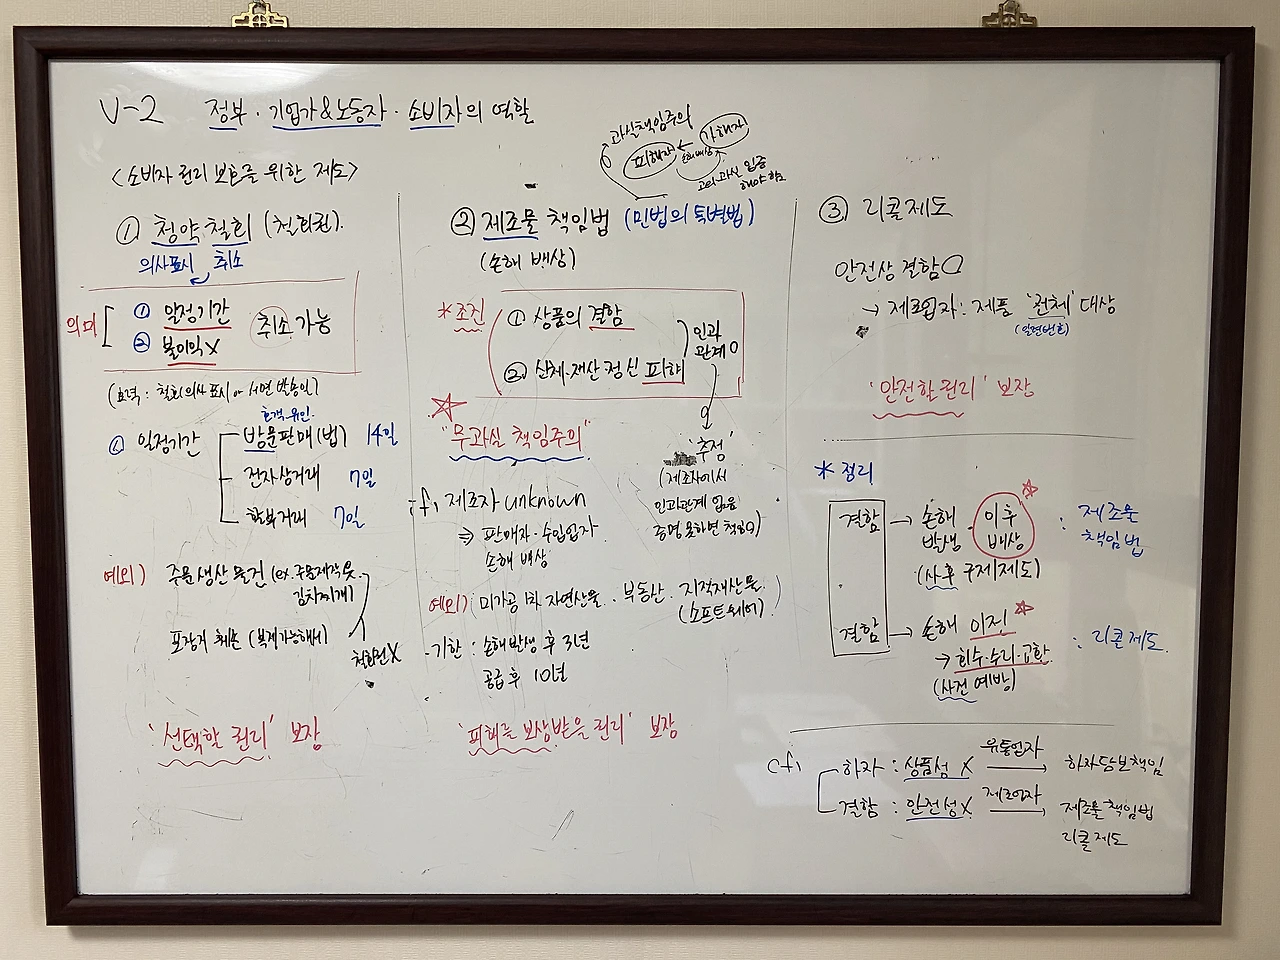 V-2 정부·기업가&노동자·소비자의 역할
<소비자 권리 보호를 위한 제도>
① 청약철회 (철회권).
의사표시 취소
의미
① 일정기간
② 불이익X
취소가능
(효력: 철회의사표시 서면 발송일)
② 일정기간
호객 유인
방문판매(법) 14일
전자상거래 7일
할부거래 7일
예외) 주문 생산 물건 (ex. 주문제작 옷,
김치찌개)
포장지 훼손 (복제가능해서)
철회권X
'선택할 권리' 보장
과실책임주의
가해자
피해자
손해배상
고의·과실 입증
해야 함
② 제조물 책임법 (민법의 특별법)
(손해 배상)
*조건
① 상품의 결함
② 신체·재산 정신 피해
인과
관계O
☆
"무과실 책임주의"
'추정'
(제조사에서
인과관계 없음
증명 못하면 책임O)
cf) 제조자 unknown
⇒ 판매자·수입업자
손해 배상
예외) 미가공 1차 자연산물·부동산·지적재산물
(소프트웨어)
·기한 : 손해발생 후 3년
공급 후 10년
'피해를 보상받을 권리' 보장
③ 리콜제도
안전상 결함O
→ 제조업자 : 제품 '전체' 대상
(일련번호)
'안전할 권리' 보장
*정리
결함 → 손해 발생 이후 배상 : 제조물 책임법
(사후 구제제도)
결함 → 손해 이전 : 리콜제도
→ 회수·수리·교환
(사전 예방)
cf)
하자 : 상품성 X 유통업자 → 하자담보책임
결함 : 안전성X 제조업자 → 제조물 책임법
리콜제도